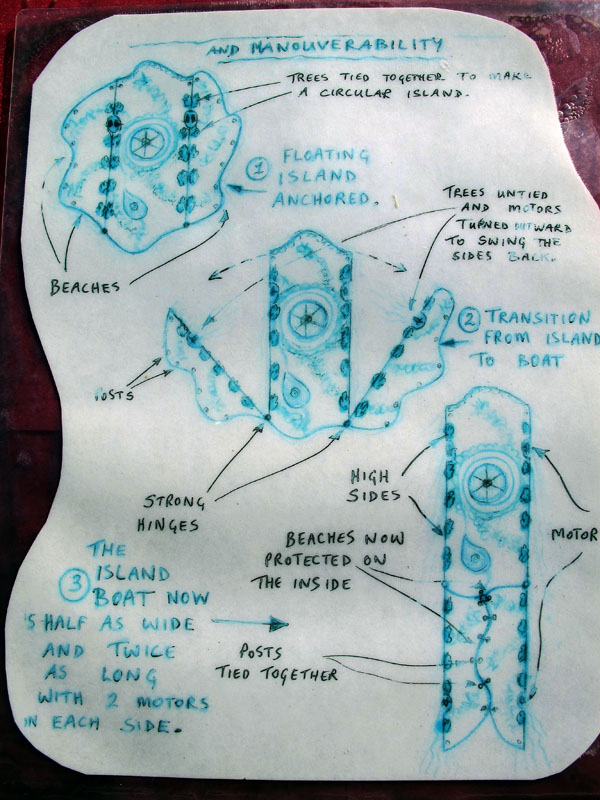 AND MANOUVERABILITY
TREES TIED TOGETHER TO MAKE
A CIRCULAR ISLAND.
1 FLOATING
ISLAND
ANCHORED.
BEACHES
TREES UNTIED
AND MOTORS
TURNED OUTWARD
TO SWING THE
SIDES BACK.
2 TRANSITION
FROM ISLAND
TO BOAT
POSTS
STRONG
HINGES
HIGH
SIDES
MOTOR
BEACHES NOW
PROTECTED ON
THE INSIDE
POSTS
TIED TOGETHER
THE
3 ISLAND
BOAT NOW
'S HALF AS WIDE
AND TWICE
AS LONG
WITH 2 MOTORS
IN EACH SIDE.